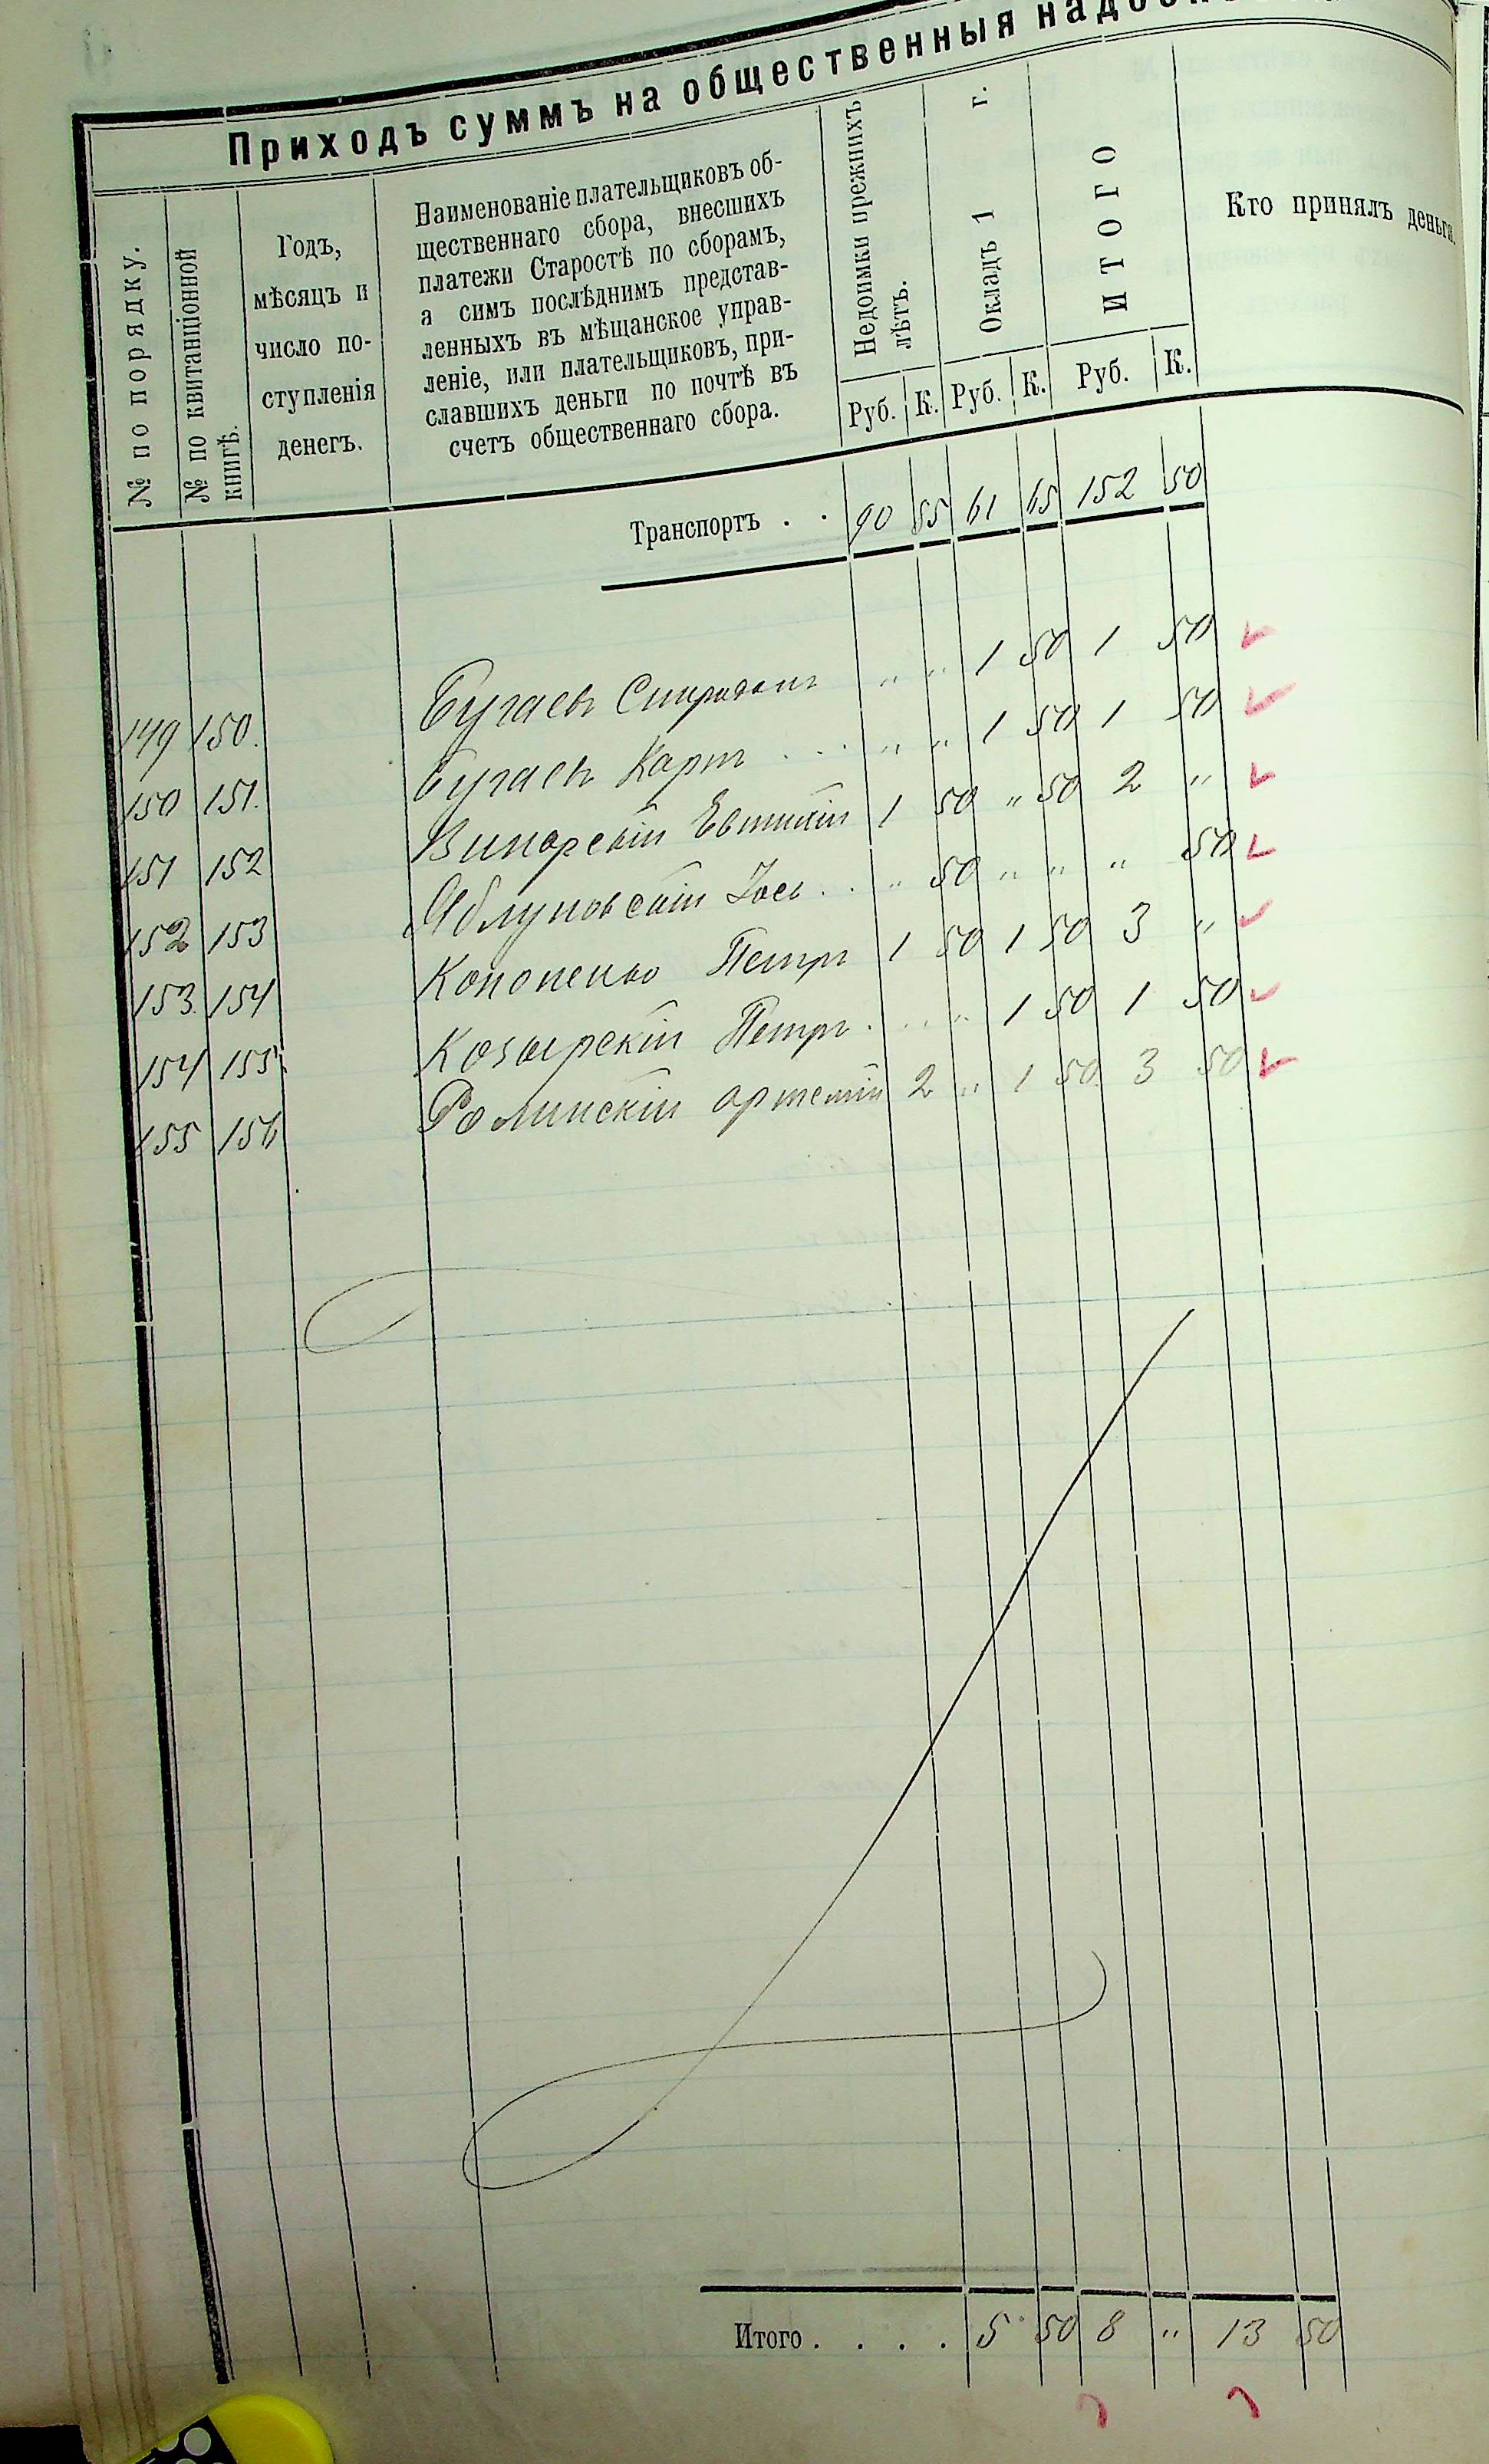 Приходъ суммъ на общественныя
№ по порядку.
№ по квитанціонной
книгѣ.
Годъ,
мѣсяцъ и
число по-
ступленія
денегъ.
Наименованіе плательщиковъ об-
щественнаго сбора, внесшихъ
платежи Старостѣ по сборамъ,
а симъ послѣднимъ представ-
ленныхъ въ мѣщанское управ-
леніе, или плательщиковъ, при-
славшихъ деньги по почтѣ въ
счетъ общественнаго сбора.
Недоимки прежнихъ
лѣтъ.
Окладъ 1 г.
ИТОГО
Кто принялъ деньги.
Руб. К. Руб. К. Руб. К.
Транспортъ . . 90 85 61 65 152 50
149 150. Бугаевъ Спиридонъ " " 1 50 1 50
150 151. Бугаевъ Карпъ . . . " " 1 50 1 50
151 152 Винарскій Евтихій 1 50 " 50 2 "
152 153 Яблуновскій Іось . . " 50 " " " 50
153. 154 Кононенко Петръ 1 50 1 50 3 "
154 155. Козырскій Петръ . . . " 1 50 1 50
155 156 Ролинскій Артемій 2 " 1 50 3 50
Итого . . . . 5 50 8 " 13 50